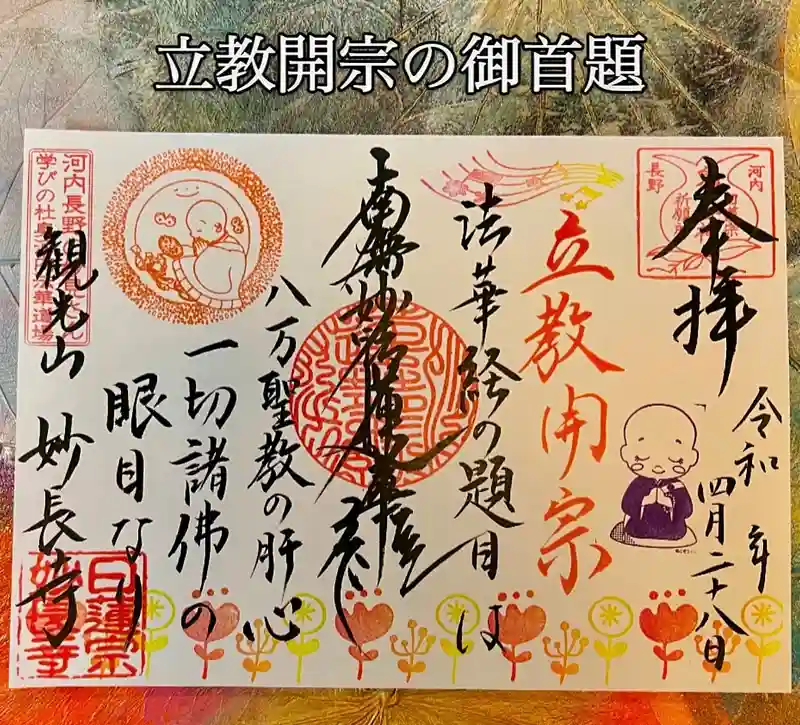 立教開宗の御首題
河内
長野
奉拝
令和 年
四月二十八日
立教開宗
法華経の題目は
南無妙法蓮華経
八万聖教の肝心
一切諸佛の
眼目なり
観光山 妙長寺
日蓮宗
妙長寺